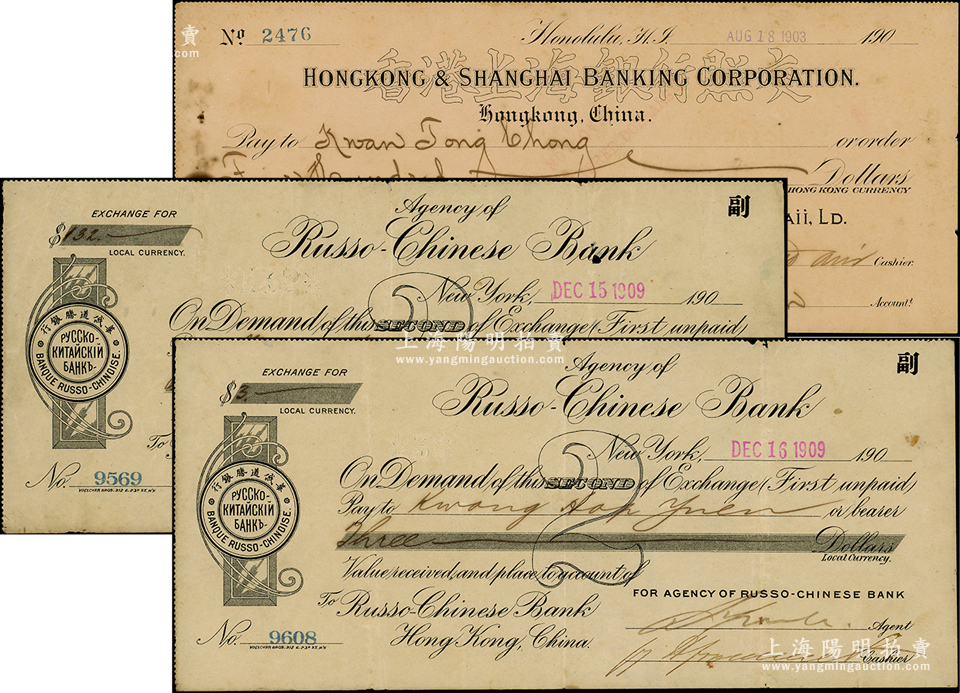 No 2476
Honolulu, H.I. AUG 18 1903 190
香港上海銀行照交
HONGKONG & SHANGHAI BANKING CORPORATION.
Hongkong, China.
Pay to Kwan Tong Chong or order
Hundred Dollars
HONG KONG CURRENCY
AII, LD.
Cashier.
Account.
EXCHANGE FOR
$ 132.—
LOCAL CURRENCY.
Agency of
副
Russo-Chinese Bank
New York, DEC 15 1909 190
On Demand of this SECOND of Exchange (First unpaid)
2
行銀勝道
РУССКО-
КИТАЙСКІЙ
БАНКЪ.
BANQUE RUSSO-CHINOISE.
To
No. 9569
VOELCKER BROS.
EXCHANGE FOR
$ 3.—
LOCAL CURRENCY.
Agency of
副
Russo-Chinese Bank
New York, DEC 16 1909 190
On Demand of this SECOND of Exchange (First unpaid)
2
Pay to Kwong Hop Yuen or bearer
Three Dollars
Local Currency.
Value received and place to account of
行銀勝道
РУССКО-
КИТАЙСКІЙ
БАНКЪ.
BANQUE RUSSO-CHINOISE.
FOR AGENCY OF RUSSO-CHINESE BANK
To Russo-Chinese Bank
Hong Kong, China.
Agent
Cashier
No. 9608
VOELCKER BROS.
上海陽明拍賣
www.yangmingauction.com
上海陽明拍賣
www.yangmingauction.com
上海陽明拍賣
www.yangmingauction.com